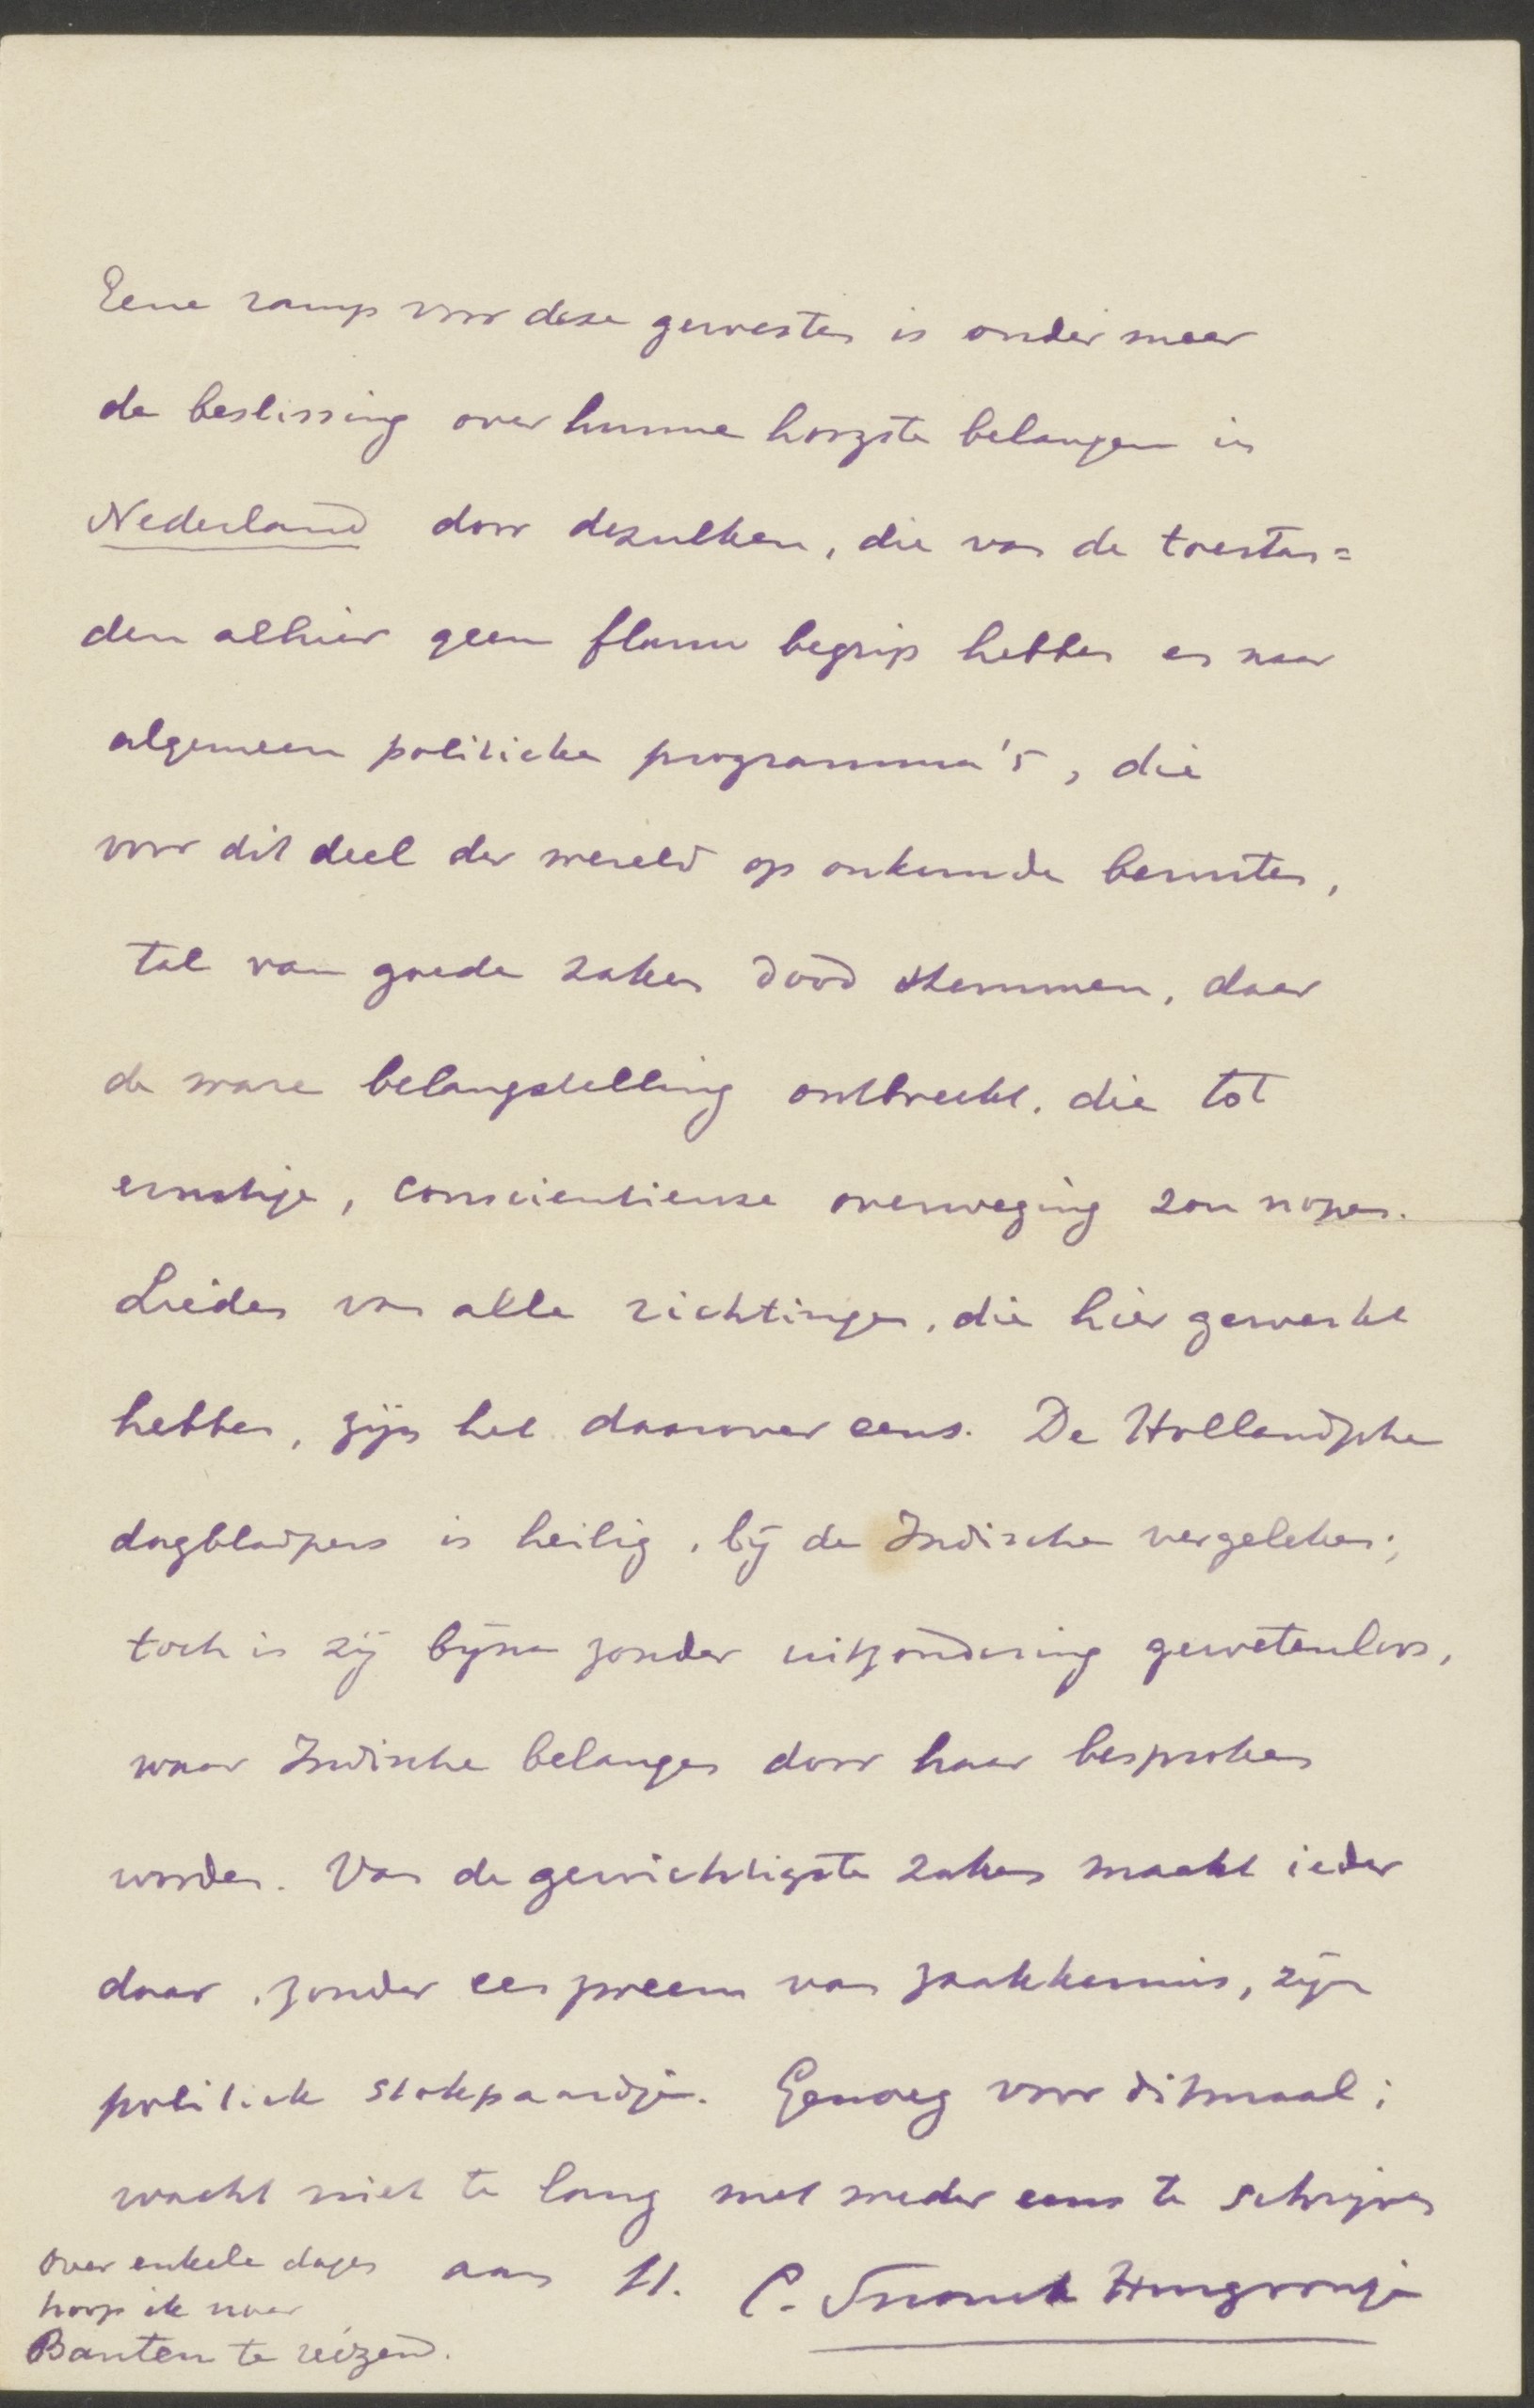 Eene ramp voor deze gewesten is onder meer
de beslissing over hunne hoogste belangen in
Nederland door dezulken, die van de toestan=
den alhier geen flauw begrip hebben en naar
algemeen politieke programma's, die
voor dit deel der wereld op onkunde berusten,
tal van goede zaken dood stemmen, daar
de ware belangstelling ontbreekt, die tot
ernstige, conscientieuse overweging zou nopen.
Lieden van alle richtingen, die hier gewerkt
hebben, zijn het daarover eens. De Hollandsche
dagbladpers is heilig, bij de Indische vergeleken;
toch is zij bijna zonder uitzondering gewetenloos,
waar Indische belangen door haar besproken
worden. Van de gewichtigste zaken maakt ieder
daar, zonder een zweem van zaakkennis, zijn
politiek stokpaardje. Genoeg voor ditmaal;
wacht niet te lang met weder eens te schrijven
aan tt. C. Snouck Hurgronje
Over enkele dagen
hoop ik naar
Banten te reizen.